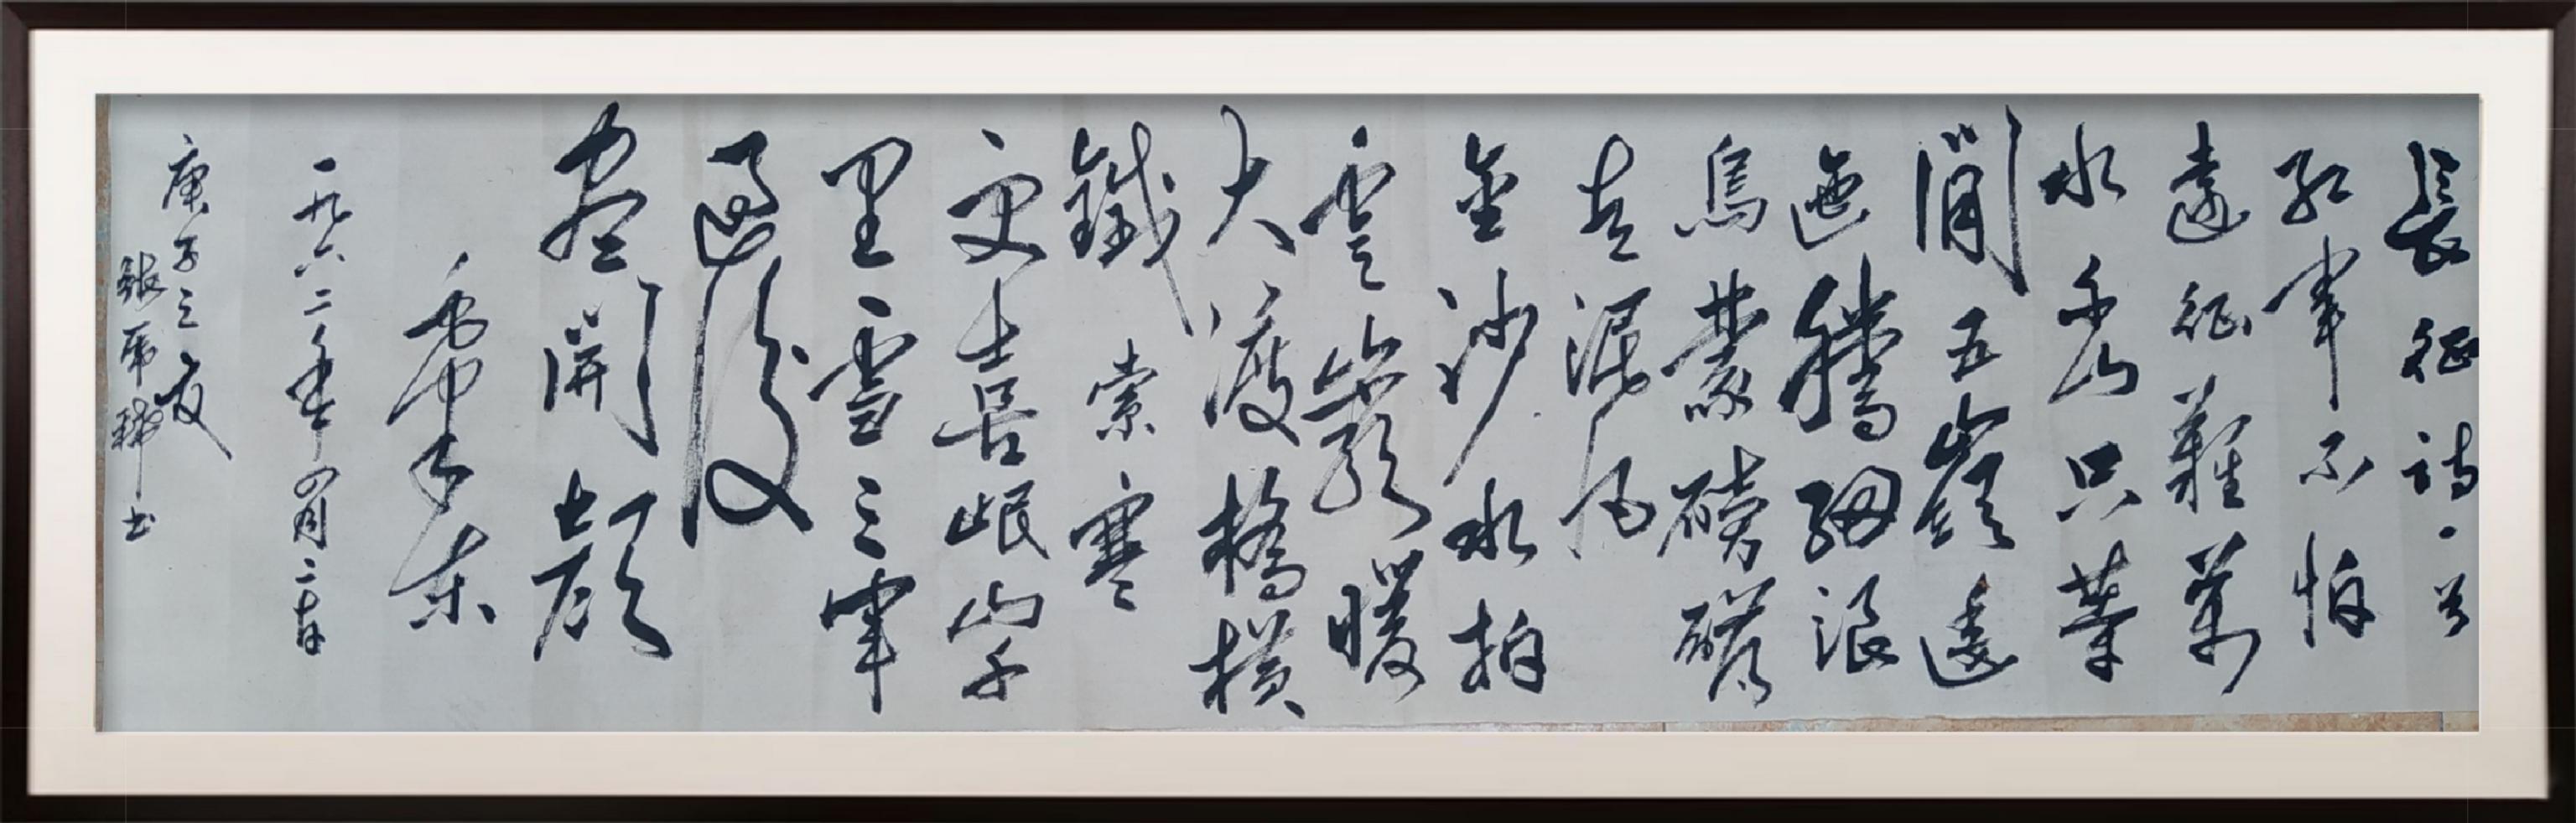 長征詩·首
紅軍不怕
遠征難萬
水千山只等
閒五嶺逶
迤騰細浪
烏蒙磅礴
走泥丸
金沙水拍
雲巖暖
大渡橋橫
鐵索寒
更喜岷山千
里雪三軍
過後
盡開顏
毛澤東
一九六二年四月二十日
庚子之夏
張 書